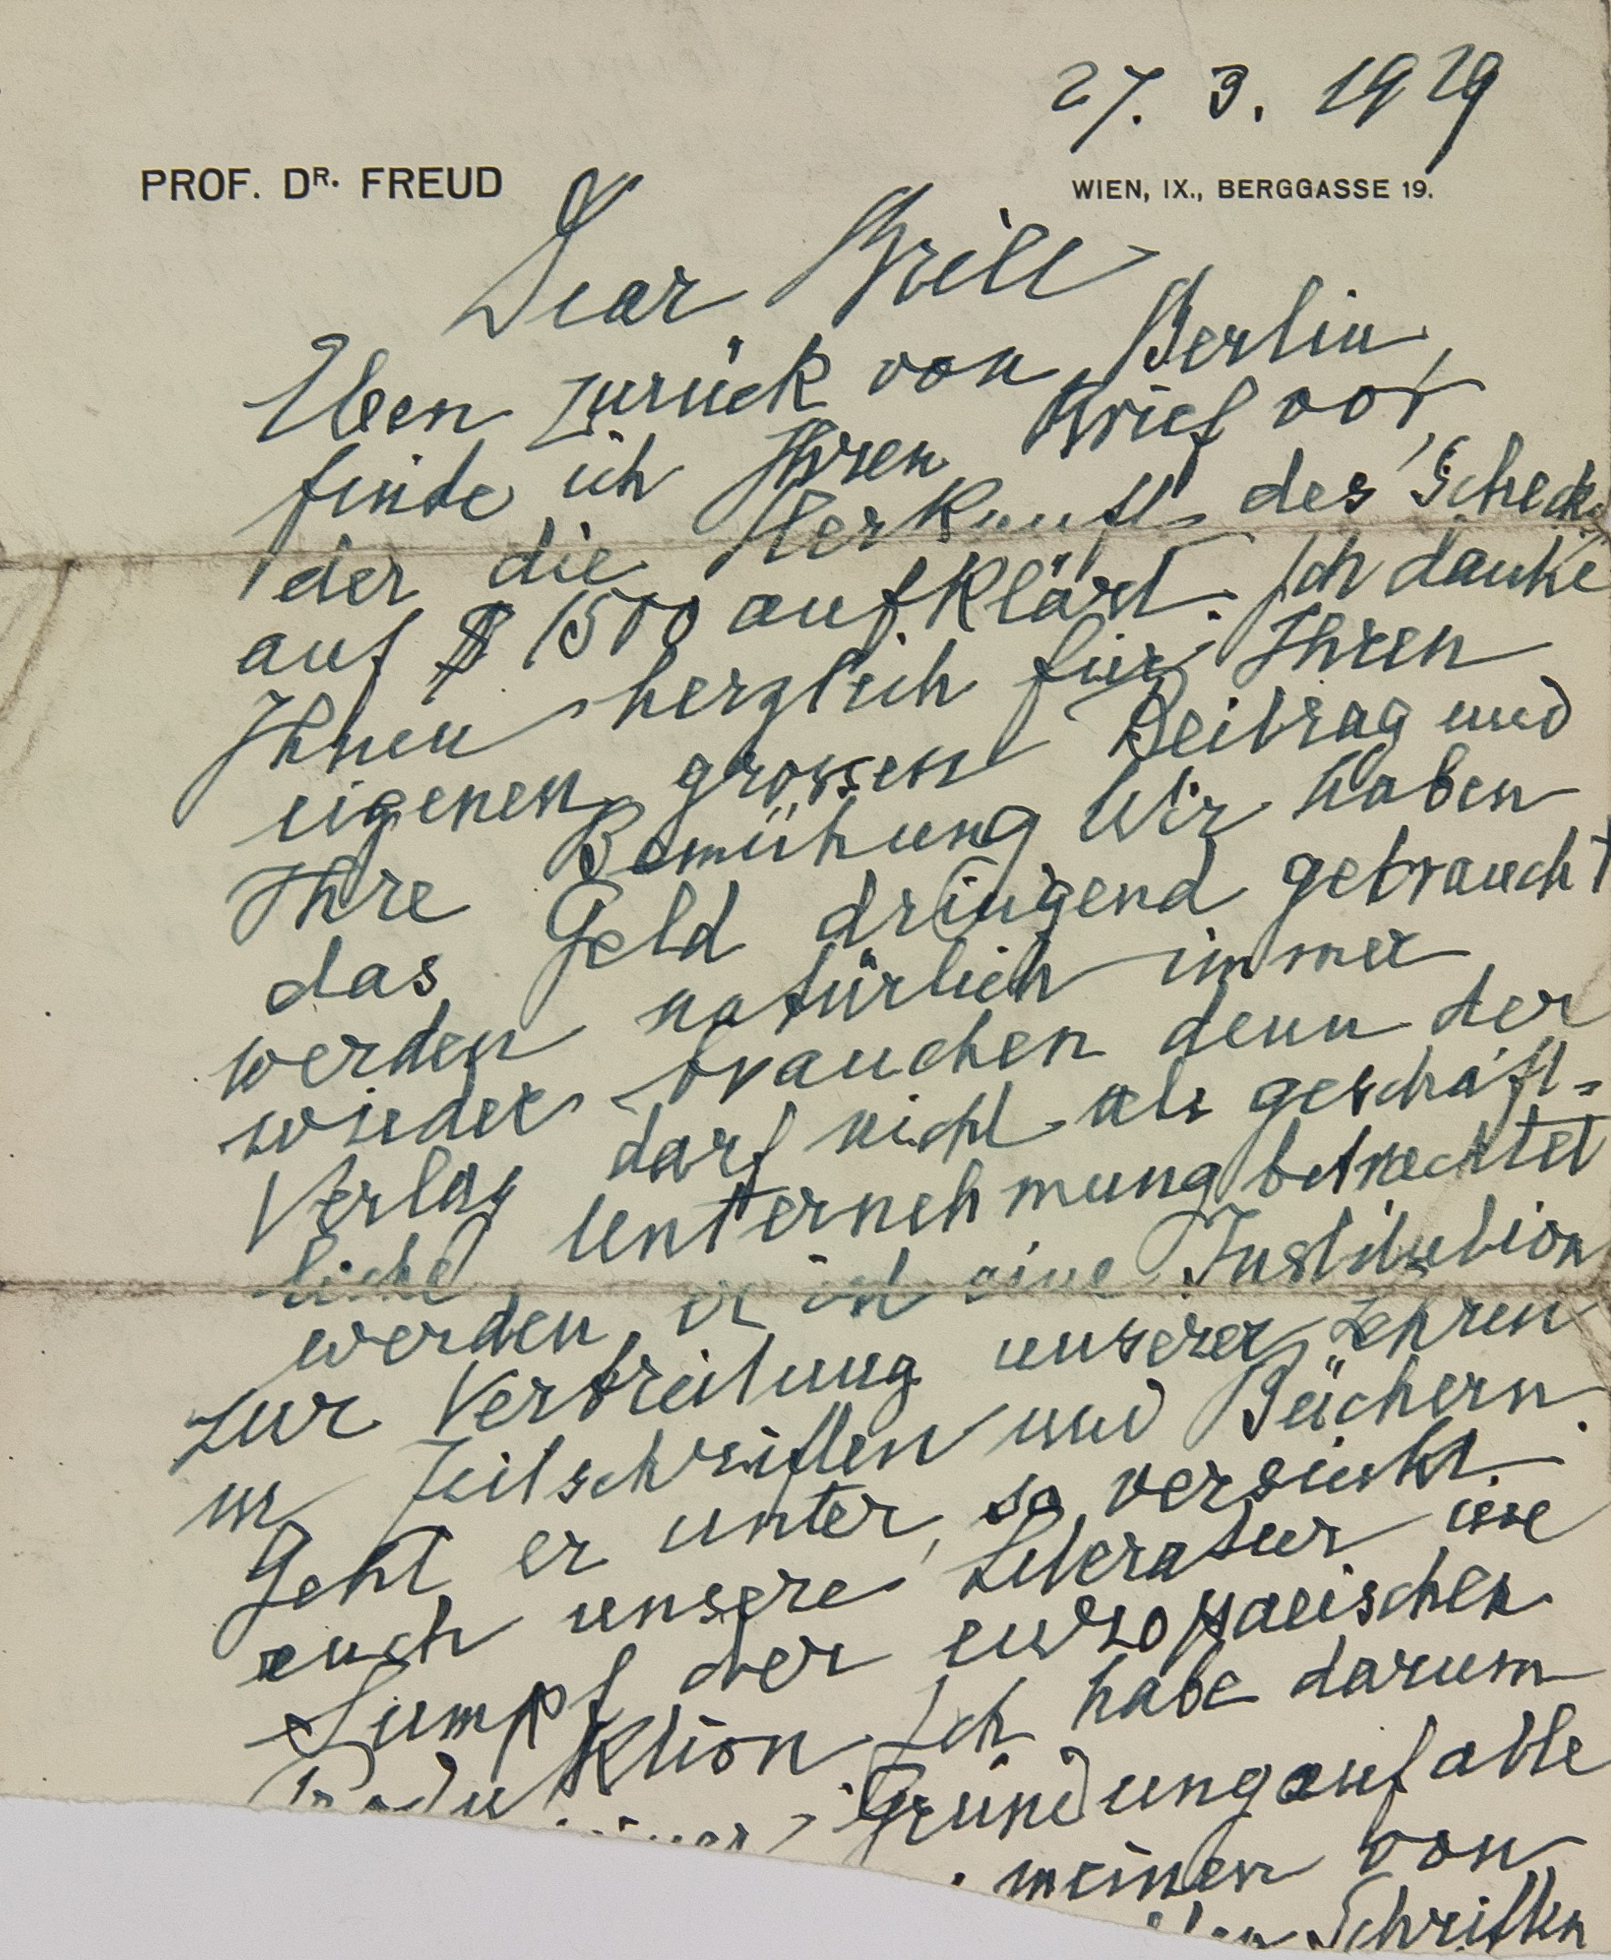 27. 3. 1929
PROF. DR. FREUD
WIEN, IX., BERGGASSE 19.
Dear Brill
Eben zurück von Berlin,
finde ich Ihren Brief vor,
der die Herkunft des Schecks
auf $ 1500 aufklärt. Ich danke
Ihnen herzlich für Ihren
eigenen grossen Beitrag und
Ihre Bemühung Wir haben
das Geld dringend gebraucht
werden natürlich immer
wieder brauchen denn der
Verlag darf nicht als geschäft=
liche Unternehmung betrachtet
werden, er ist eine Institution
zur Verbreitung unserer Lehren
in Zeitschriften und Büchern.
Geht er unter, so versinkt
auch unsere Literatur im
Sumpf der europaeischen
Produktion. Ich habe darum
Gründung auf alle
meinen von
Schriften